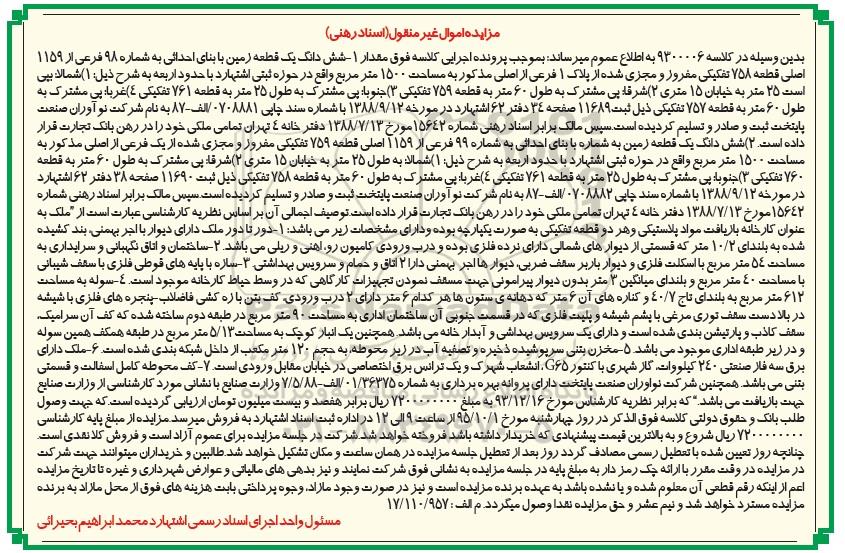 مزایده اموال غیر منقول (اسناد رهنی)
بدین وسیله در کلاسه ۹۳۰۰۰۰۶ به اطلاع عموم میرساند: بموجب پرونده اجرایی کلاسه فوق مقدار ۱-شش دانگ یک قطعه زمین با بنای احداثی به شماره ۹۸ فرعی از ۱۱۵۹
اصلی قطعه ۷۵۸ تفکیکی مفروز و مجزی شده از پلاک ۱ فرعی از اصلی مذکور به مساحت ۱۵۰۰ متر مربع واقع در حوزه ثبتی اشتهارد با حدود اربعه به شرح ذیل: ۱)شمالا: بپی
است ۲۵ متر به خیابان ۱۵ متری ۲)شرقا: پی مشترک به طول ۶۰ متر به قطعه ۷۵۹ تفکیکی ۳)جنوبا: پی مشترک به طول ۲۵ متر به قطعه ۷۶۱ تفکیکی ۴)غربا: پی مشترک به
طول ۶۰ متر به قطعه ۷۵۷ تفکیکی ذیل ثبت ۱۱۶۸۹ صفحه ۳۴ دفتر ۶۲ اشتهارد در مورخه ۱۳۸۸/۹/۱۲ با شماره سند چاپی ۰۷۰۸۸۸۱/الف-۸۷ به نام شرکت نو آوران صنعت
پایتخت ثبت و صادر و تسلیم گردیده است.سپس مالک برابر اسناد رهنی شماره ۱۵۶۴۲مورخ ۱۳۸۸/۷/۱۳ دفتر خانه ۴ تهران تمامی ملکی خود را در رهن بانک تجارت قرار
داده است. ۲)شش دانگ یک قطعه زمین به شماره با بنای احداثی به شماره ۹۹ فرعی از ۱۱۵۹ اصلی قطعه ۷۵۹ تفکیکی مفروز و مجزی شده از یک فرعی از اصلی مذکور به
مساحت ۱۵۰۰ متر مربع واقع در حوزه ثبتی اشتهارد با حدود اربعه به شرح ذیل: ۱)شمالا: به طول ۲۵ متر به خیابان ۱۵ متری ۲)شرقا: پی مشترک به طول ۶۰ متر به قطعه
۷۶۰ تفکیکی ۳)جنوبا: پی مشترک به طول ۲۵ متر به قطعه ۷۶۱ تفکیکی ۴)غربا: پی مشترک به طول ۶۰ متر به قطعه ۷۵۸ تفکیکی ذیل ثبت ۱۱۶۹۰ صفحه ۳۸ دفتر ۶۲ اشتهارد
در مورخه ۱۳۸۸/۹/۱۲ با شماره سند چاپی ۰۷۰۸۸۲/الف-۸۷ به نام شرکت نو آوران صنعت پایتخت ثبت و صادر و تسلیم گردیده است.سپس مالک برابر اسناد رهنی شماره
۱۵۶۴۲مورخ ۱۳۸۸/۷/۱۳ دفتر خانه ۴ تهران تمامی ملکی خود را در رهن بانک تجارت قرار داده است.توصیف اجمالی آن بر اساس نظریه کارشناسی عبارت است از "ملک به
عنوان کارخانه بازیافت مواد پلاستیکی وهر دو قطعه تفکیکی به صورت یکپارچه بوده و دارای مشخصات زیر می باشد: ۱-دور تا دور ملک دارای دیوار با اجر بهمنی، بند کشیده
شده به بلندای ۱۰/۲ متر که قسمتی از دیوار های شمالی دارای نرده فلزی بوده و درب ورودی کامیون رو، اهنی و ریلی می باشد. ۲-ساختمان و اتاق نگهبانی و سرایداری به
مساحت ۵۴ متر مربع با اسکلت فلزی و دیوار باربر سقف ضربی، دیوار ها اجر بهمنی دارا ۲ اتاق و حمام و سرویس بهداشتی. ۳-سازه با پایه های قوطی فلزی با سقف شیبانی
با مساحت ۴۰ متر مربع و بلندای میانگین ۳ متر بدون دیوار پیرامونی جهت مسقف نمودن تجهیزات کارگاهی که در وسط حیاط کارخانه موجود است. ۴-سوله به مساحت
۶۱۲ متر مربع به بلندای تاج ۴۰/۷ و کناره های آن ۶ متر که دهانه ی ستون ها هر کدام ۶ متر دارای ۲ درب ورودی، کف بتن با زه کشی فاضلاب-پنجره های فلزی با شیشه
در بالا دست سقف توری مرغی با پشم شیشه و پلیت فلزی که در قسمت جنوبی آن ساختمان اداری به مساحت ۹۰ متر مربع در طبقه دوم ساخته شده که کف آن سرامیک،
سقف کاذب و پارتیشن بندی شده است و دارای یک سرویس بهداشتی و آبدار خانه می باشد. همچنین یک انبار کوچک به مساحت۵/۱۳ متر مربع در طبقه همکف همین سوله
و در زیر طبقه اداری موجود می باشد. ۵-مخزن بتنی سرپوشیده ذخیره و تصفیه آب در زیر محوطه، به حجم ۱۲۰ متر مکعب از داخل شبکه بندی شده است. ۶-ملک دارای
برق سه فاز صنعتی ۲۴۰ کیلووات، گاز شهری با کنتور G۶۵، انشعاب شهرک و یک ترانس برق اختصاصی در خیابان مقابل ورودی است. ۷-کف محوطه کامل اسفالت و قسمتی
بتنی می باشد. همچنین شرکت نواوران صنعت پایتخت دارای پروانه بهره برداری به شماره ۰۱/۳۶۳۷۵/الف-۷/۵/۸۸ وزارت صنایع با نشانی مورد کارشناسی از وزارت صنایع
جهت بازیافت می باشد." که برابر نظریه کارشناس مورخ ۹۳/۱۲/۱۶ به مبلغ ۷۲۰۰۰۰۰۰۰۰ ریال برابر هفصد و بیست میلیون تومان ارزیابی گردیده است.که جهت وصول
طلب بانک و حقوق دولتی کلاسه فوق الذکر در روز چهارشنبه مورخ ۹۵/۱۰/۱ از ساعت ۹ الی ۱۲ در اداره ثبت اسناد اشتهارد به فروش میرسد.مزایده از مبلغ پایه کارشناسی
۷۲۰۰۰۰۰۰۰۰ ریال شروع و به بالاترین قیمت پیشنهادی که خریدار داشته باشد فروخته خواهد شد.شرکت در جلسه مزایده برای عموم آزاد است و فروش کلا نقدی است.
چنانچه روز تعیین شده با تعطیل رسمی مصادف گردد روز بعد از تعطیل جلسه مزایده در همان ساعت و مکان تشکیل خواهد شد.طالبین و خریداران میتوانند جهت شرکت
در مزایده در وقت مقرر با ارائه چک رمز دار به مبلغ پایه در جلسه مزایده به نشانی فوق شرکت نمایند و نیز بدهی های مالیاتی و عوارض شهرداری و غیره تا تاریخ مزایده
اعم از اینکه رقم قطعی آن معلوم شده و یا نشده باشد به عهده برنده مزایده است و نیز در صورت وجود مازاد، وجوه پرداختی بابت هزینه های فوق از محل مازاد به برنده
مزایده مسترد خواهد شد و نیم عشر و حق مزایده نقدا وصول میگردد. م الف : ۱۷/۱۱۰/۹۵۷
مسئول واحد اجرای اسناد رسمی اشتهارد محمد ابراهیم بحیرائی